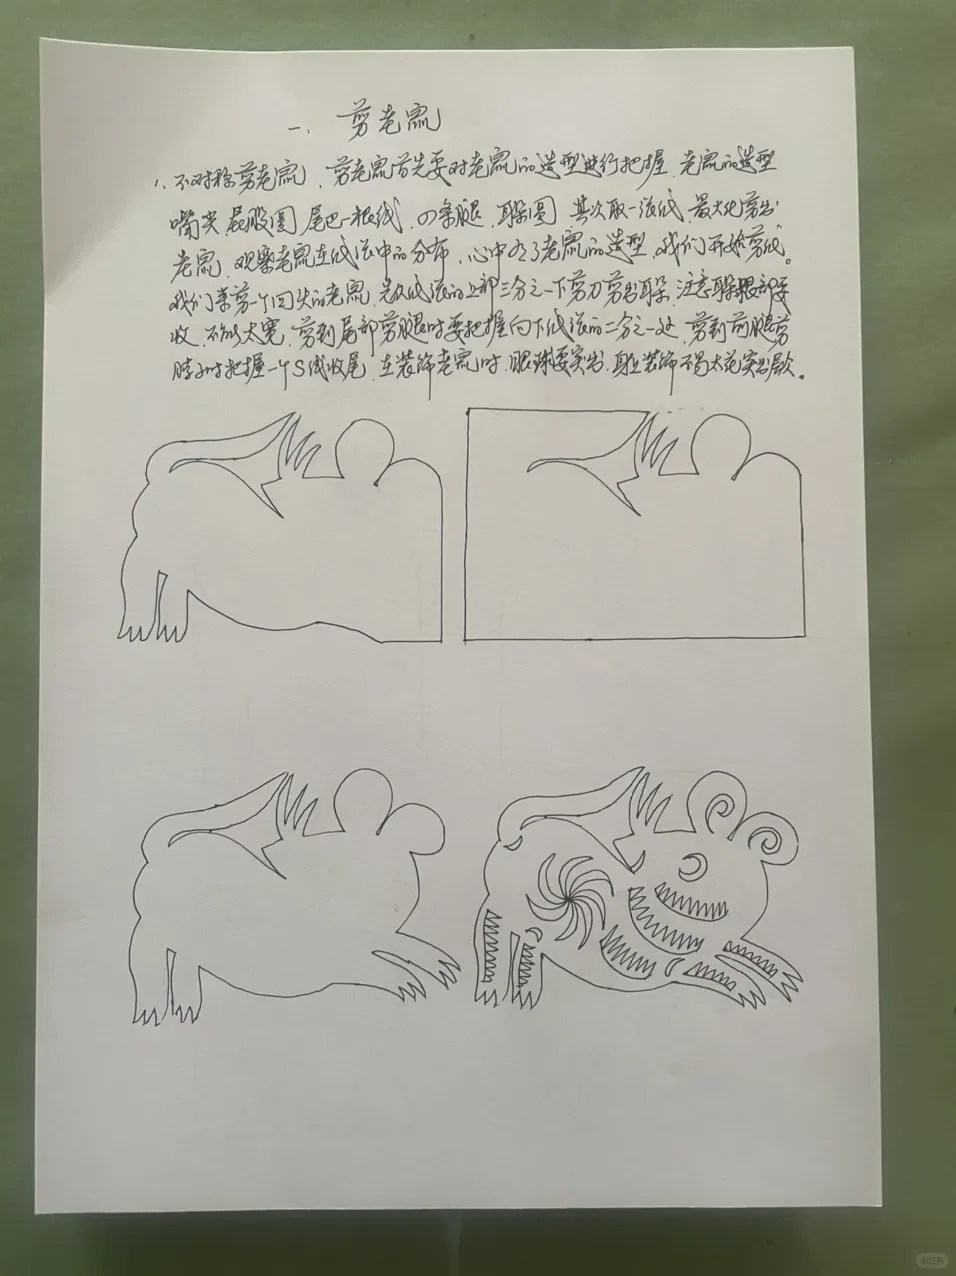 一、剪老鼠
1、不对称剪老鼠、剪老鼠首先要对老鼠的造型进行把握 老鼠的造型
嘴尖 屁股圆 尾巴一根线、四条腿 耳朵圆 其次取一张纸、最大化剪出
老鼠、观察老鼠在纸张中的分布、心中有了老鼠的造型 我们开始剪纸。
我们来剪一个回头的老鼠、先从纸张的上部三分之一下剪刀剪出耳朵、注意耳朵根部要
收、不能太宽、剪到尾部剪腿时要把握向下纸张的二分之一处、剪到前腿剪
脖子时把握一个S线收尾、在装饰老鼠时、眼珠要突出、身上装饰不易太花突出层次。
小红书